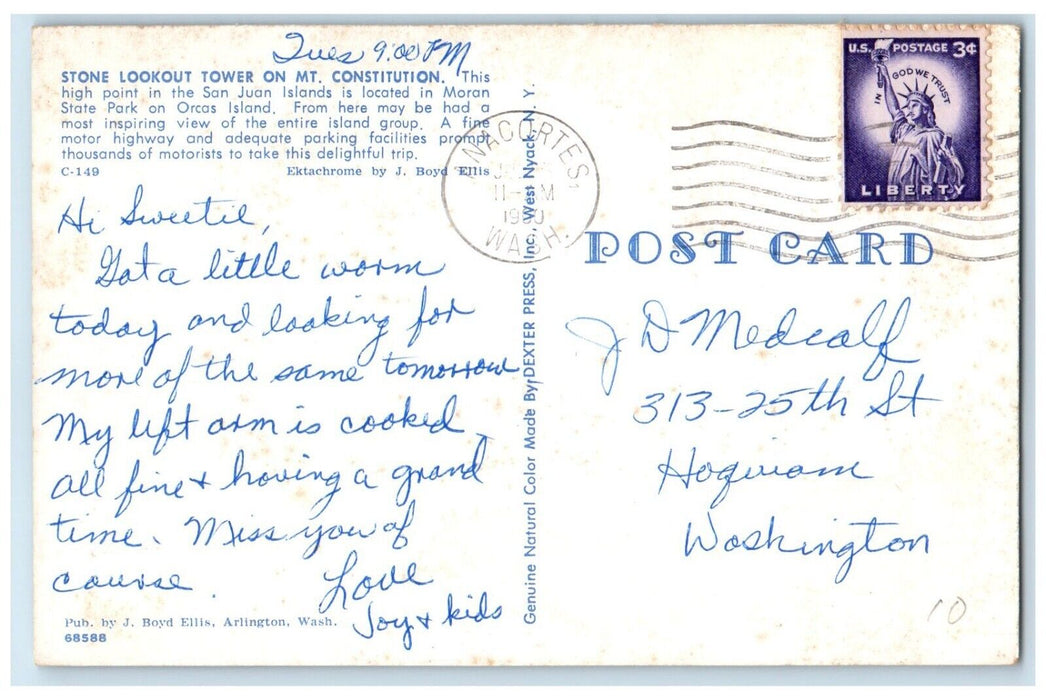 Tues 9:00 PM
STONE LOOKOUT TOWER ON MT. CONSTITUTION. This
high point in the San Juan Islands is located in Moran
State Park on Orcas Island. From here may be had a
most inspiring view of the entire island group. A fine
motor highway and adequate parking facilities prompt
thousands of motorists to take this delightful trip.
C-149 Ektachrome by J. Boyd Ellis
Hi Sweetie,
Got a little worm
today and looking for
more of the same tomorrow
My left arm is cooked.
All fine + having a grand
time. Miss you of
course.
Love
Joy + kids
Pub. by J. Boyd Ellis, Arlington, Wash.
68588
Genuine Natural Color Made By DEXTER PRESS, Inc., West Nyack, N. Y.
ANACORTES
1960
WASH.
U.S. POSTAGE 3¢
IN GOD WE TRUST
LIBERTY
POST CARD
J D Medcalf
313-25th St
Hoquiam
Washington
10